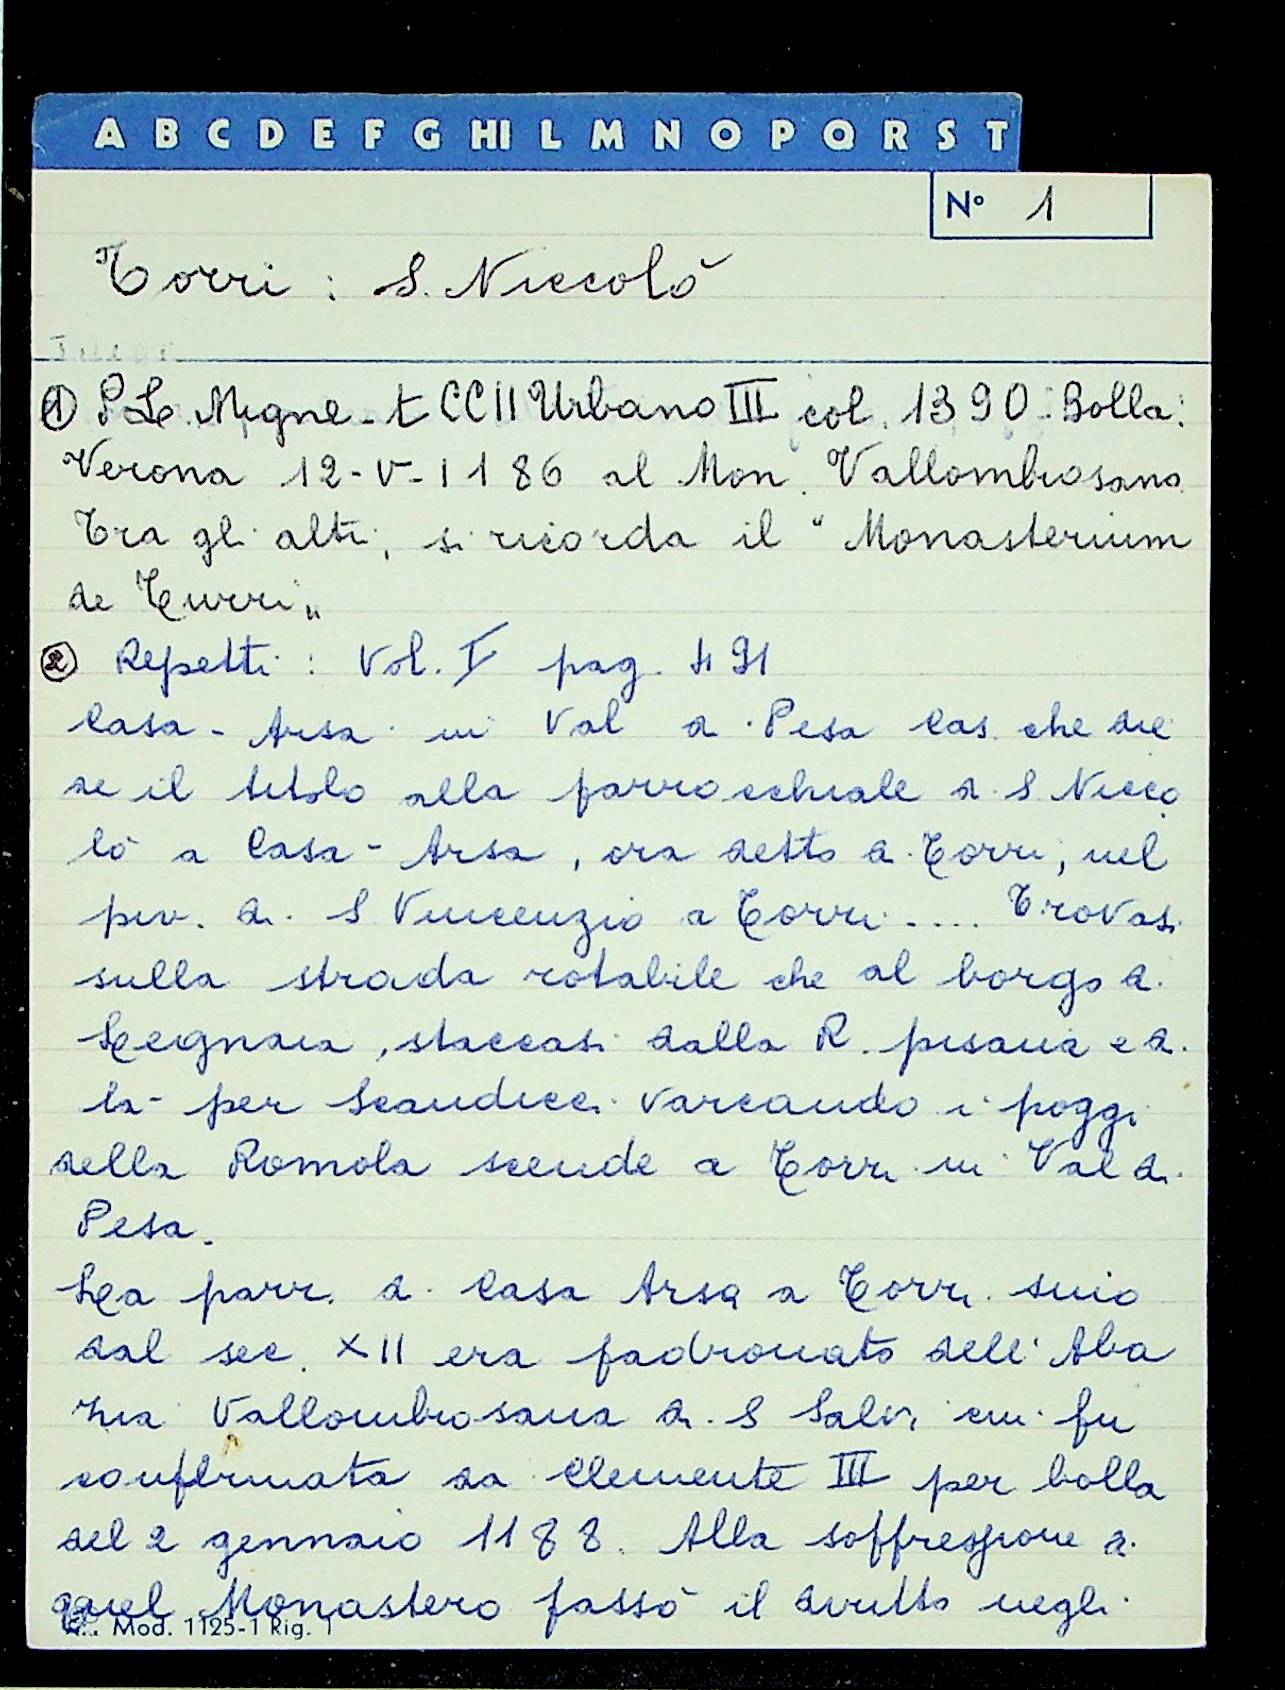 A B C D E F G HI L M N O P Q R S T
N° 1
Torri : S. Niccolò
① P.L. Migne - t CCII Urbano III col. 1390. Bolla:
Verona 12-V-1186 al Mon. Vallombrosano
Tra gli altri, si ricorda il "Monasterium
de Turri"
② Repetti : Vol. V pag. 491
Casa - Arsa in Val di Pesa Cas. che die
de il titolo alla parrocchiale di S Nicco
lò a Casa - Arsa, ora detto a Torri, nel
piv. di S Vincenzio a Torri .... Trovasi
sulla strada rotabile che al borgo di
Legnaia, staccasi dalla R. pisana e di
là per Scandicci varcando i poggi
della Romola scende a Torri in Val di
Pesa.
La parr. di Casa Arsa a Torri sino
dal sec. XII era padronato dell'Aba
zia Vallombrosana di S Salvi cui fu
confermata da Clemente III per bolla
del 2 gennaio 1188. Alla soppressione di
quel Monastero passò il diritto negli
Mod. 1125-1 Rig. 1